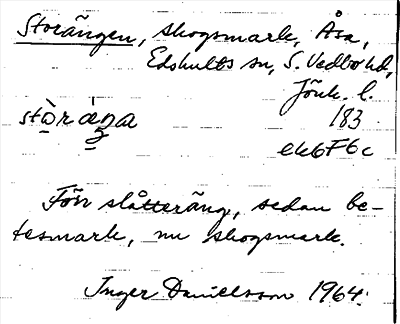 Storängen, skogsmark, Åsa,
Edshults sn, S. Vedbo hd,
Jönk. l.
stòrä́ŋa 183
ek6F6c
Förr slåtteräng, sedan be-
tesmark, nu skogsmark.
Inger Danielsson 1964.